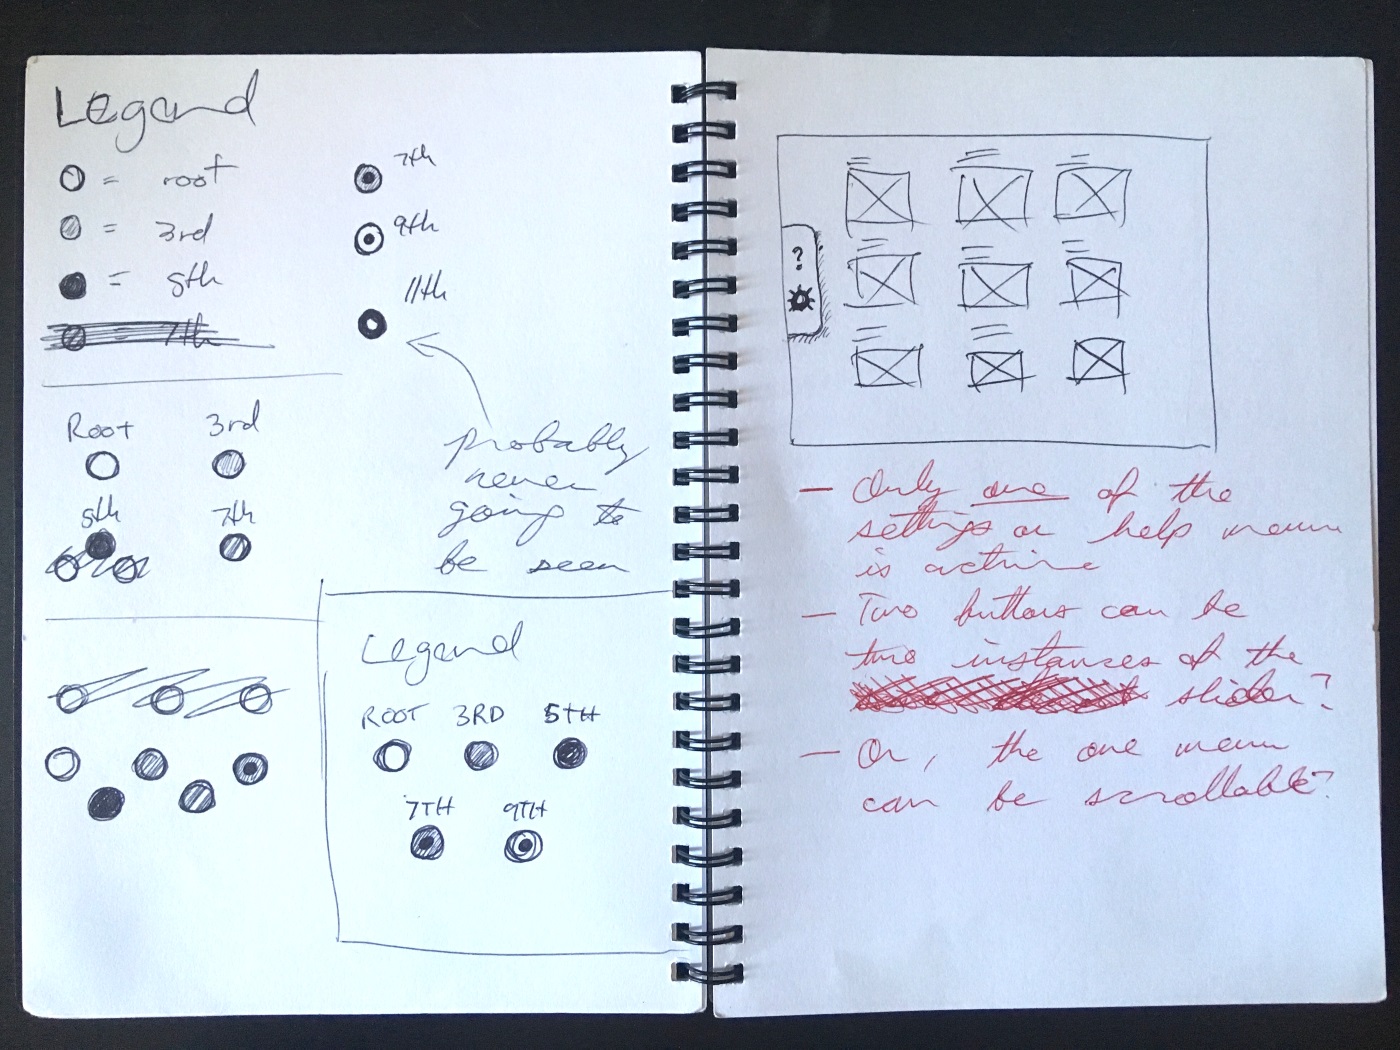 Legend
= root
= 3rd
= 5th
= 7th
7th
9th
11th
probably
never
going to
be seen
Root 3rd
5th 7th
Legend
ROOT 3RD 5TH
7TH 9TH
?
- Only one of the
settings or help menu
is active
- Two buttons can be
two instances of the
slider?
- Or, the one menu
can be scrollable?